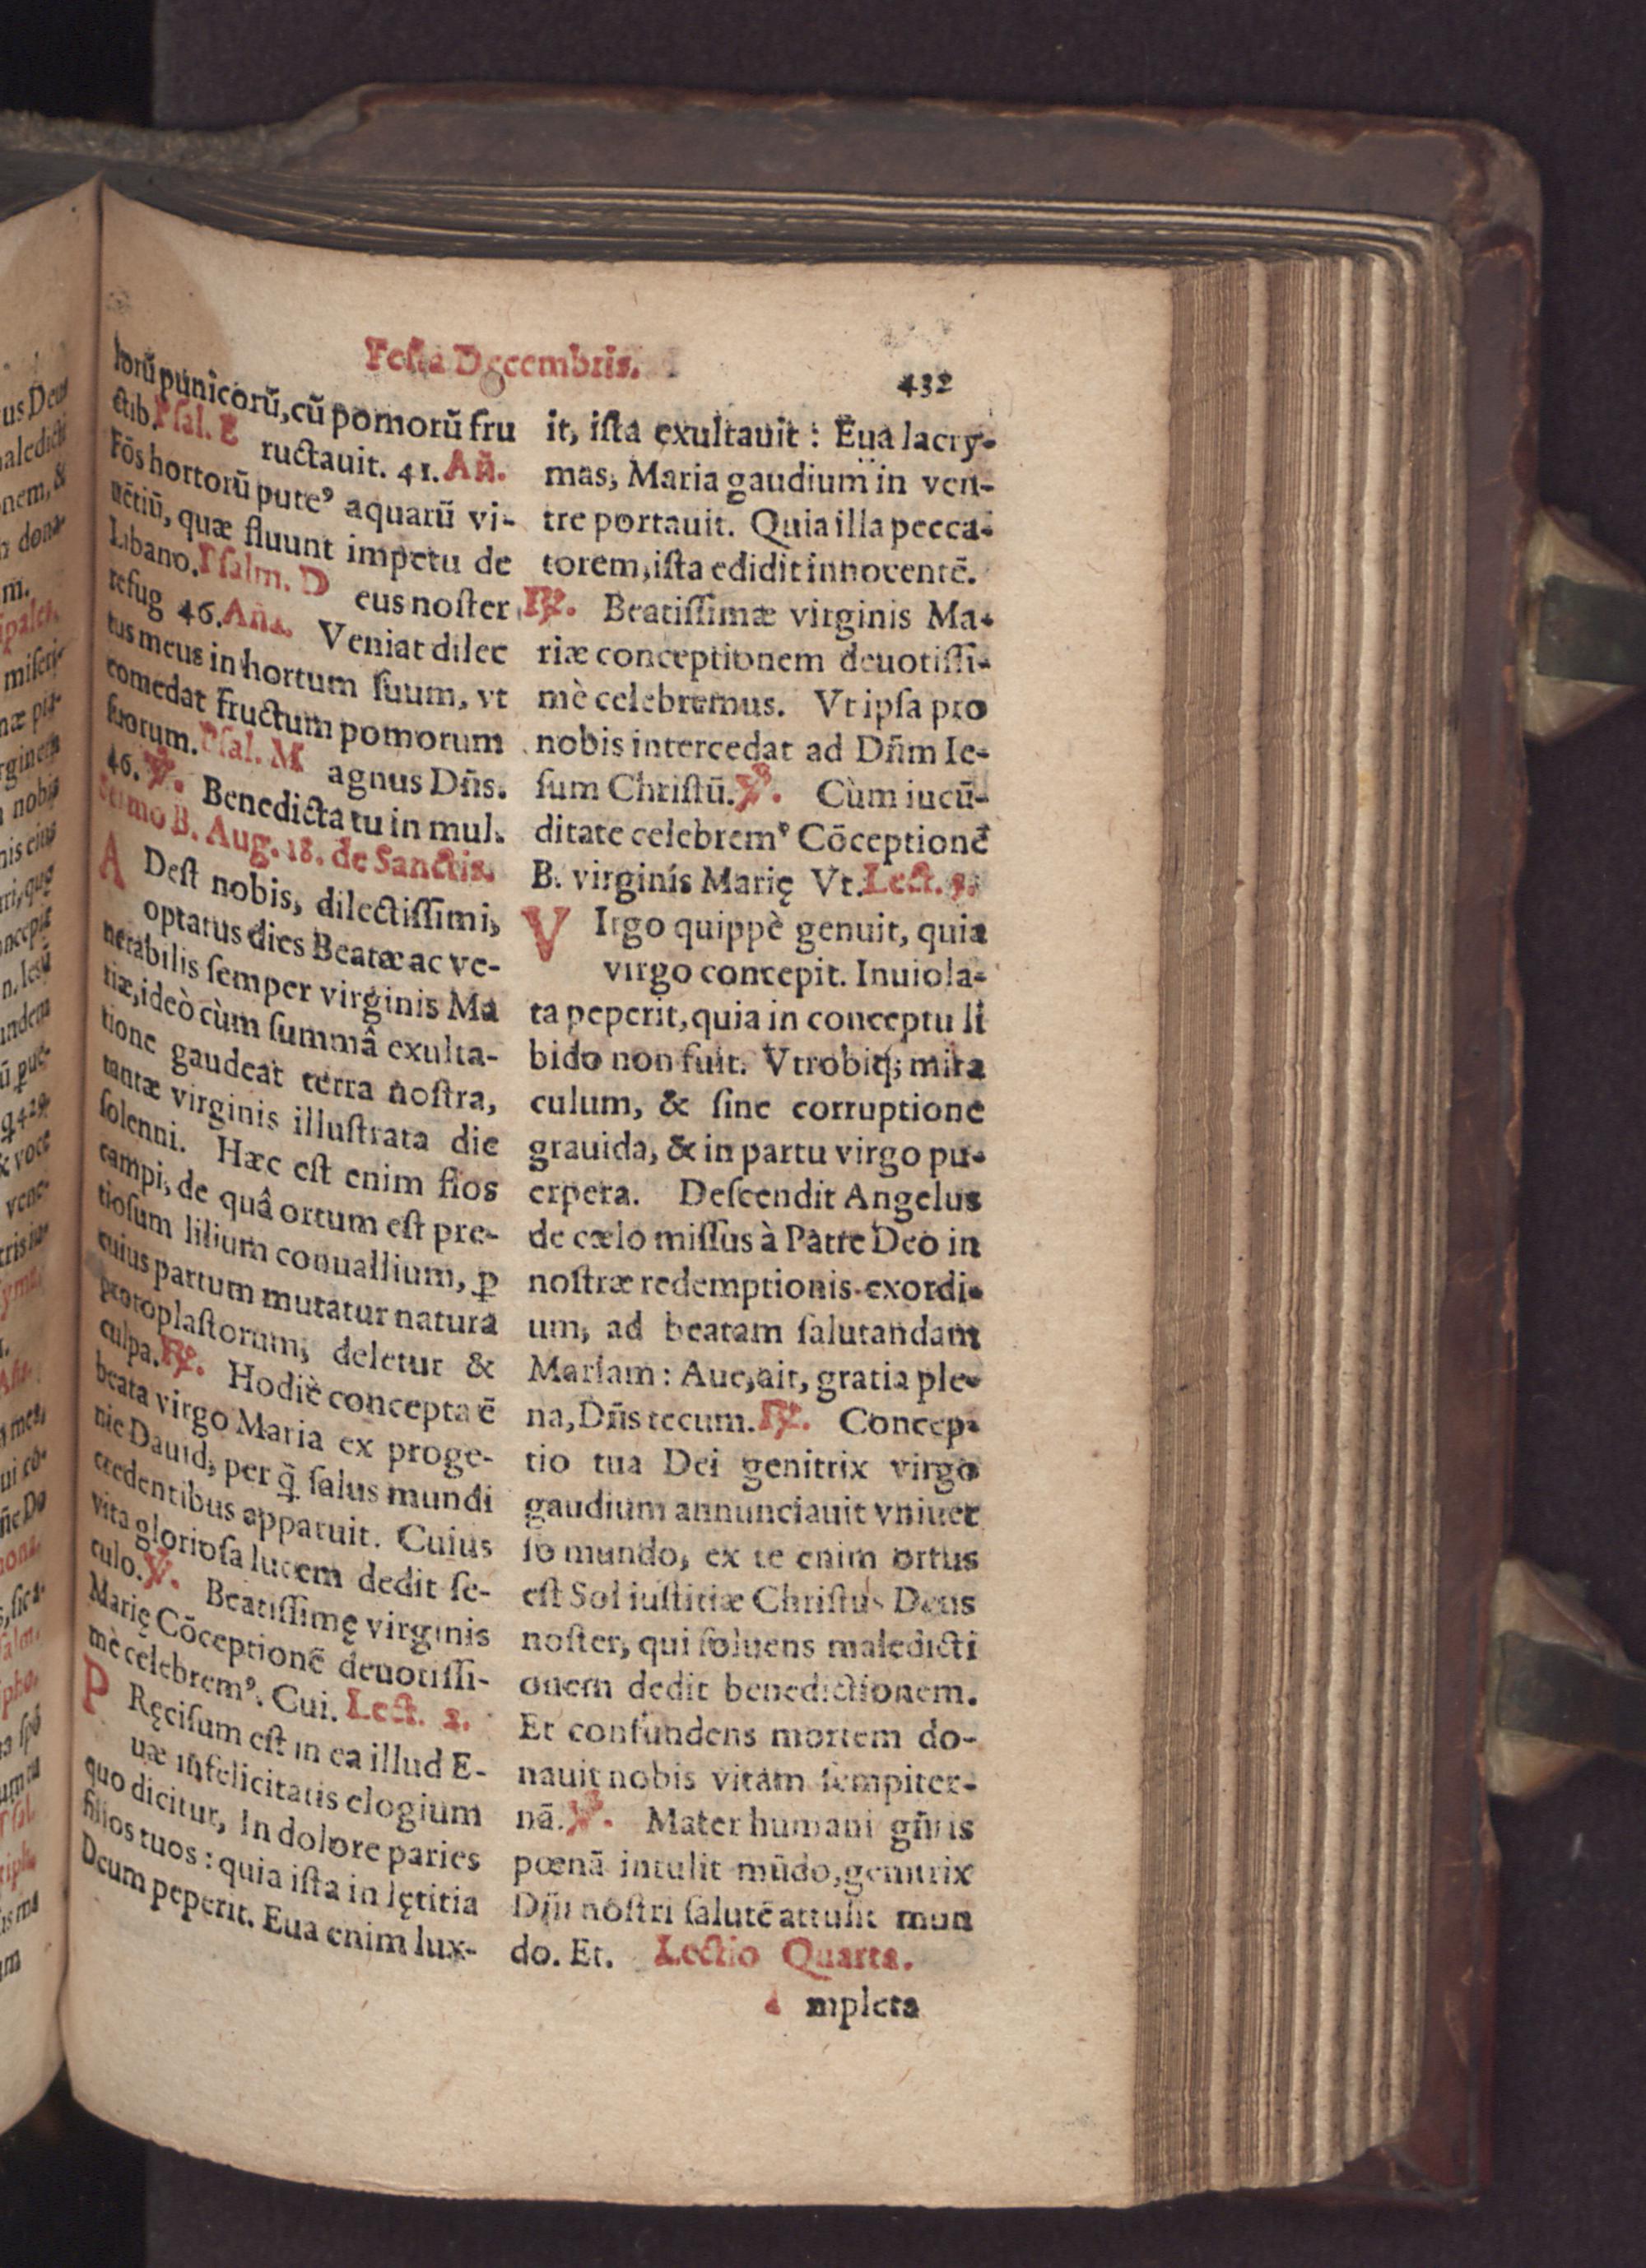 Festa Decembris.
432
lorū punicorū, cū pomorū fru
ctib. Psal. E ructauit. 41. Añ.
Fōs hortorū pute⁹ aquarū vi-
uētiū, quæ fluunt impetu de
Libano. Psalm. D eus noster
refug 46. Aña. Veniat dilec
tus meus in hortum suum, vt
comedat fructum pomorum
suorum. Psal. M agnus Dñs.
46. ℣. Benedicta tu in mul.
Sermo B. Aug. 18. de Sanctis.
A Dest nobis, dilectissimi,
optatus dies Beatæ ac ve-
nerabilis semper virginis Ma
riæ, ideò cùm summâ exulta-
tione gaudeat terra nostra,
tantæ virginis illustrata die
solenni. Hæc est enim flos
campi, de quâ ortum est pre-
tiosum lilium conuallium, ꝑ
cuius partum mutatur natura
protoplastorum, deletur &
culpa. ℟. Hodiè concepta ē
beata virgo Maria ex proge-
nie Dauid, per q̄ salus mundi
credentibus apparuit. Cuius
vita gloriosa lucem dedit se-
culo. ℣. Beatissimę virginis
Marię Cōceptionē deuotissi-
mè celebrem⁹. Cui. Lect. 2.
P Ręcisum est in ea illud E-
uæ infelicitatis elogium
quo dicitur, In dolore paries
filios tuos: quia ista in lętitia
Deum peperit. Eua enim lux-
it, ista exultauit: Eua lacry-
mas, Maria gaudium in ven-
tre portauit. Quia illa pecca-
torem, ista edidit innocentē.
℟. Beatissimæ virginis Ma-
riæ conceptionem deuotissi-
mè celebremus. Vt ipsa pro
nobis intercedat ad Dñm Ie-
sum Christū. ℣. Cùm iucū-
ditate celebrem⁹ Cōceptionē
B. virginis Marię Vt. Lect. 3.
V Irgo quippè genuit, quia
virgo concepit. Inuiola-
ta peperit, quia in conceptu li
bido non fuit. Vtrobiq; mira
culum, & sine corruptione
grauida, & in partu virgo pu-
erpera. Descendit Angelus
de cælo missus à Patre Deo in
nostræ redemptionis exordi-
um, ad beatam salutandam
Mariam: Aue, ait, gratia ple-
na, Dñs tecum. ℟. Concep-
tio tua Dei genitrix virgo
gaudium annunciauit vniuer
so mundo, ex te enim ortus
est Sol iustitiæ Christus Deus
noster, qui soluens maledicti
onem dedit benedictionem.
Et confundens mortem do-
nauit nobis vitam sempiter-
nā. ℣. Mater humani gñris
pœnā intulit mūdo, genitrix
Dñi nostri salutē attulit mun
do. Et. Lectio Quarta.
mpleta